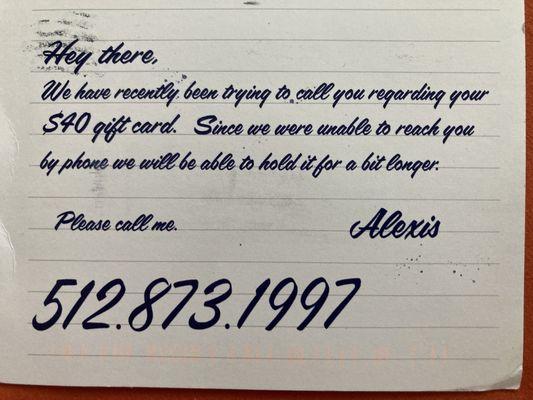 Hey there,
We have recently been trying to call you regarding your
$40 gift card. Since we were unable to reach you
by phone we will be able to hold it for a bit longer.
Please call me. Alexis
512.873.1997